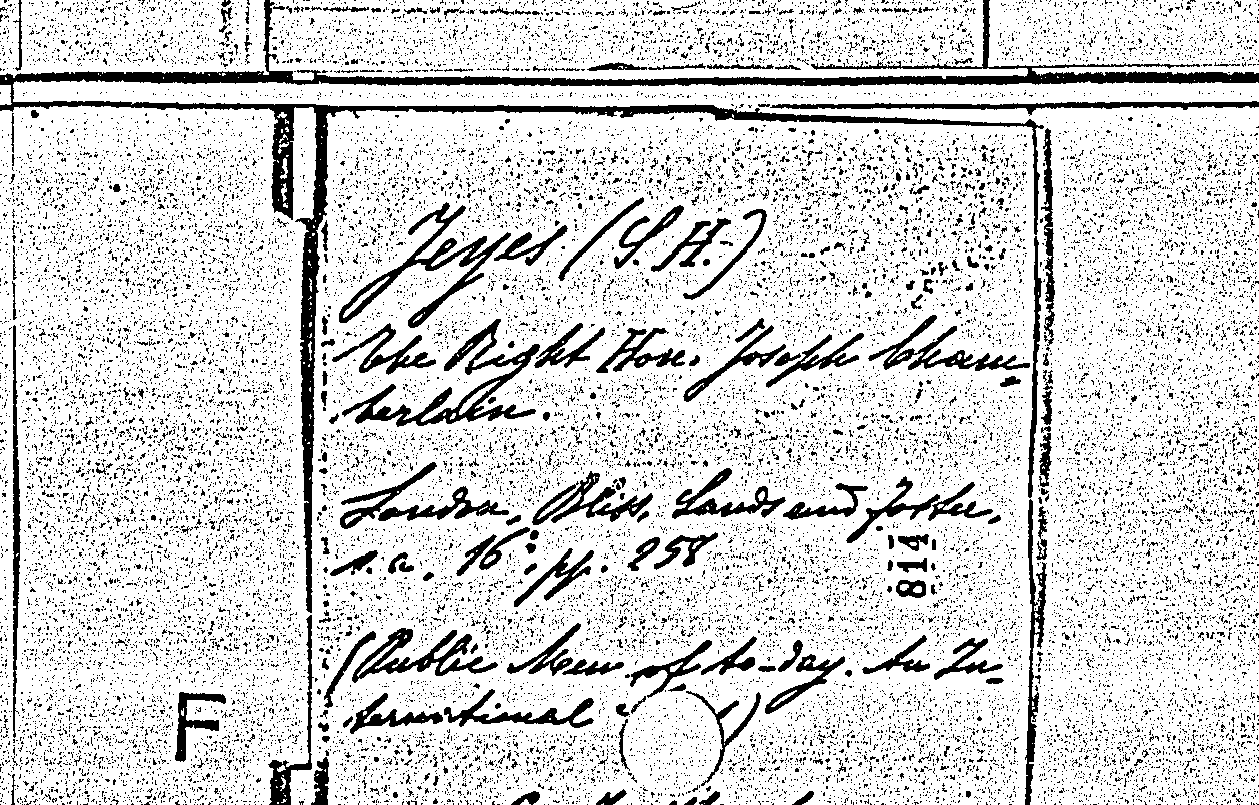 Jeyes (S. H.)
The Right Hon. Joseph Cham-
berlain.
London, Bliss, Sands and Foster,
s. a. 16°; pp. 258
814
(Public Men of to-day. An In-
ternational )
F